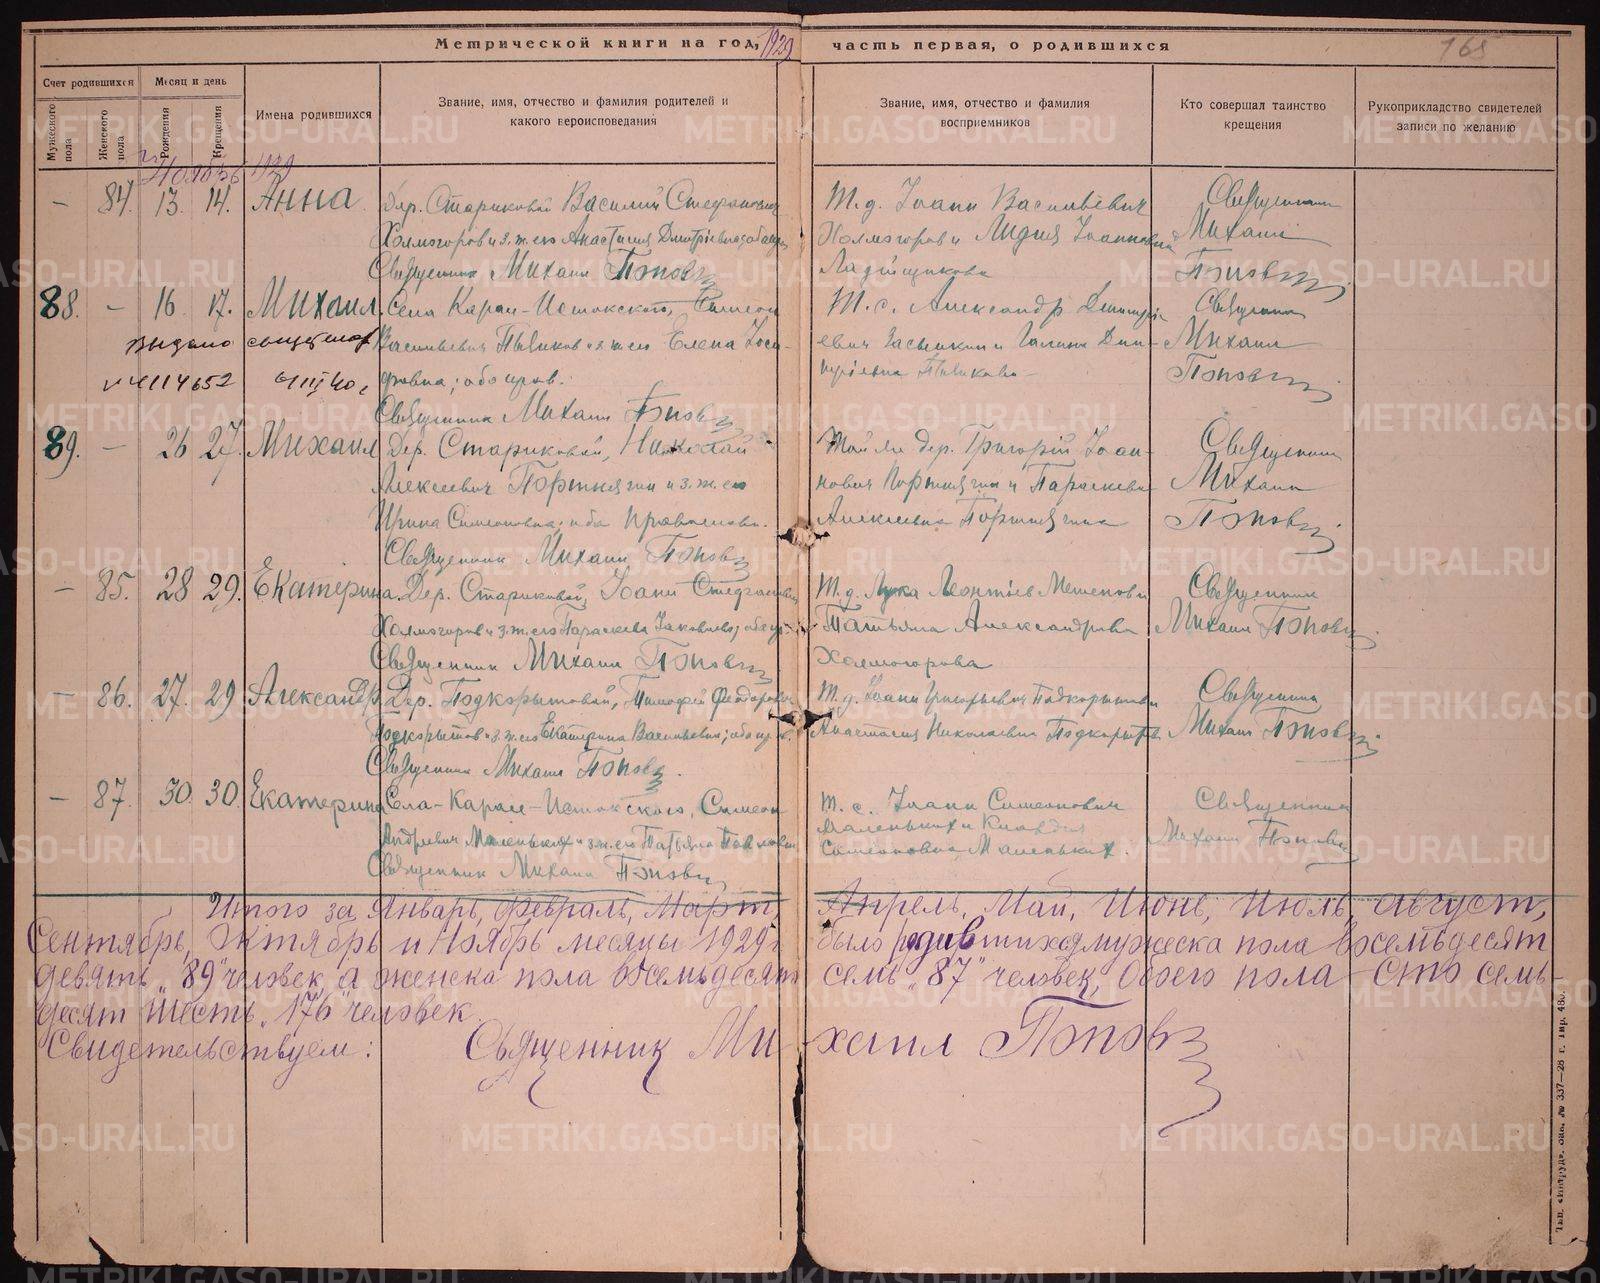 Метрической книги на год, 1929
часть первая, о родившихся
165
Счет родившихся
Месяц и день
Мужеского пола
Женского пола
Рождения
Крещения
Имена родившихся
Звание, имя, отчество и фамилия родителей и
какого вероисповедания
Звание, имя, отчество и фамилия
восприемников
Кто совершал таинство
крещения
Рукоприкладство свидетелей
записи по желанию
Ноябрь 1929
— 84. 13. 14. Анна
Дер. Стариковой Василий Стефанович
Холмогоров и з. ж. его Анастасия Дмитріевна
Священник Михаил Попов
Т. д. Іоанн Васильевич
Холмогоров и Лидия Іоанновна
Ладейщикова
Священник
Михаил
Попов
88. — 16 17. Михаил
выдано
№ 4114652
Села Карак-Истокского, Симеон
Васильевич Пьянков и з. ж. его Елена Іоси-
фовна; оба прав.
Священник Михаил Попов
Т. с. Александр Димитрі-
евич и Галина Дми-
тріевна Пьянкова
Священник
Михаил
Попов
89. — 26 27. Михаил
Дер. Стариковой, Николай
Алексеевич Портнягин и з. ж. его
Ирина Симеоновна; оба православн.
Священник Михаил Попов
Той же дер. Григорій Іоан-
нович Портнягин и Параскева
Алексеевна Портнягина
Священник
Михаил
Попов
— 85. 28 29. Екатерина.
Дер. Стариковой, Іоанн Стефанович
Холмогоров и з. ж. его Параскева Іаковлева; оба пр.
Священник Михаил Попов
Т. д. Лука Леонтьев и
Татьяна Александрова
Холмогорова
Священник
Михаил Попов
— 86. 27. 29 Александр.
Дер. Подкорытовой, Тимофей Феодорович
Подкорытов и з. ж. его Екатерина Васильевна; оба прав.
Священник Михаил Попов.
Т. д. Іоанн Григорьевич Подкорытов и
Анастасия Николаевна Подкорытова
Священник
Михаил Попов
— 87. 30. 30. Екатерина
Села Карак-Истокского, Симеон
Андреевич Маленьких и з. ж. его Татьяна Павловна
Священник Михаил Попов
Т. с. Іоанн Симеонович
Маленьких и Клавдия
Симеоновна Маленьких.
Священник
Михаил Попов
Итого за Январь, Февраль, Март, Апрель, Май, Июнь, Июль, Август,
Сентябрь, Октябрь и Ноябрь месяцы 1929 г. было родившихся мужеска пола восемьдесят
девять „89" человек, а женска пола восемьдесят семь „87" человек, обоего пола — сто семь-
десят шесть „176" человек.
Свидетельствуем: Священник Михаил Попов
METRIKI.GASO-URAL.RU